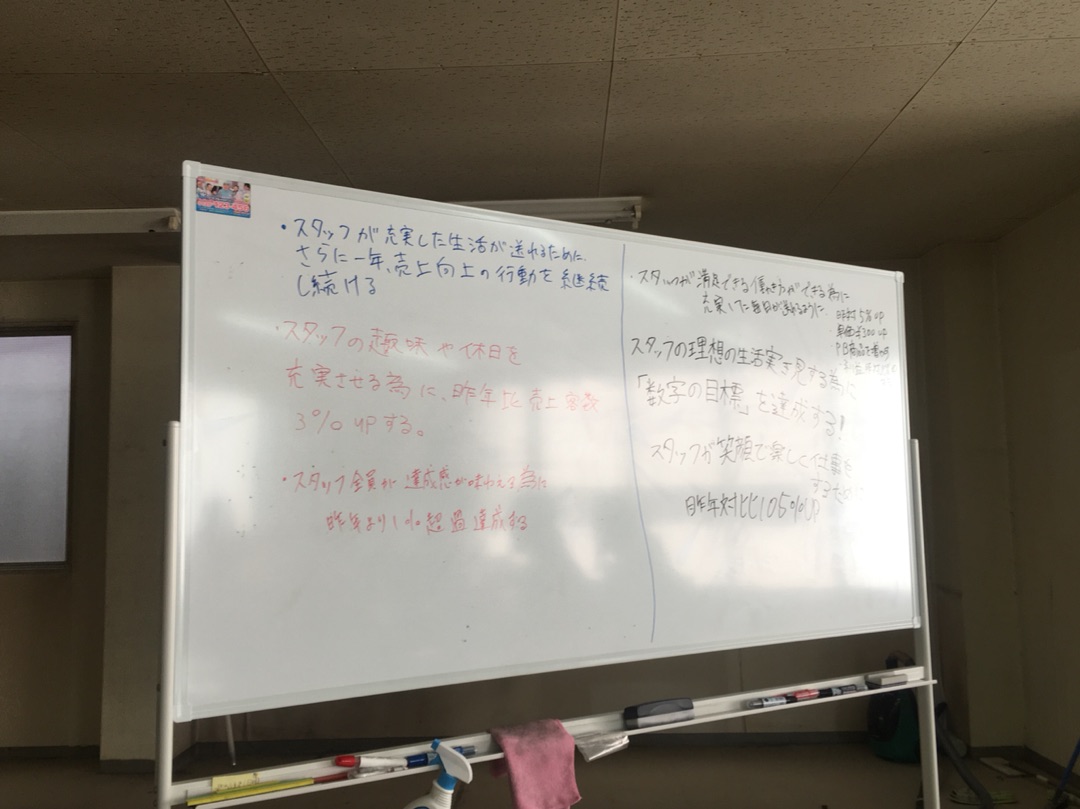 ・スタッフが充実した生活が送れるために、
さらに一年、売上向上の行動を継続
し続ける
・スタッフの趣味や休日を
充実させる為に、昨年比売上客数
3%upする。
・スタッフ全員が達成感が味わえる為に
昨年より1%超過達成する
・スタッフが満足できる働き方ができる為に
充実した毎日が送れるように
昨対5%up
・単価¥300up
・PB商品を
スタッフの理想の生活実現する為に
「数字の目標」を達成する!
スタッフが笑顔で楽しく仕事を
する
昨年対比105%UP